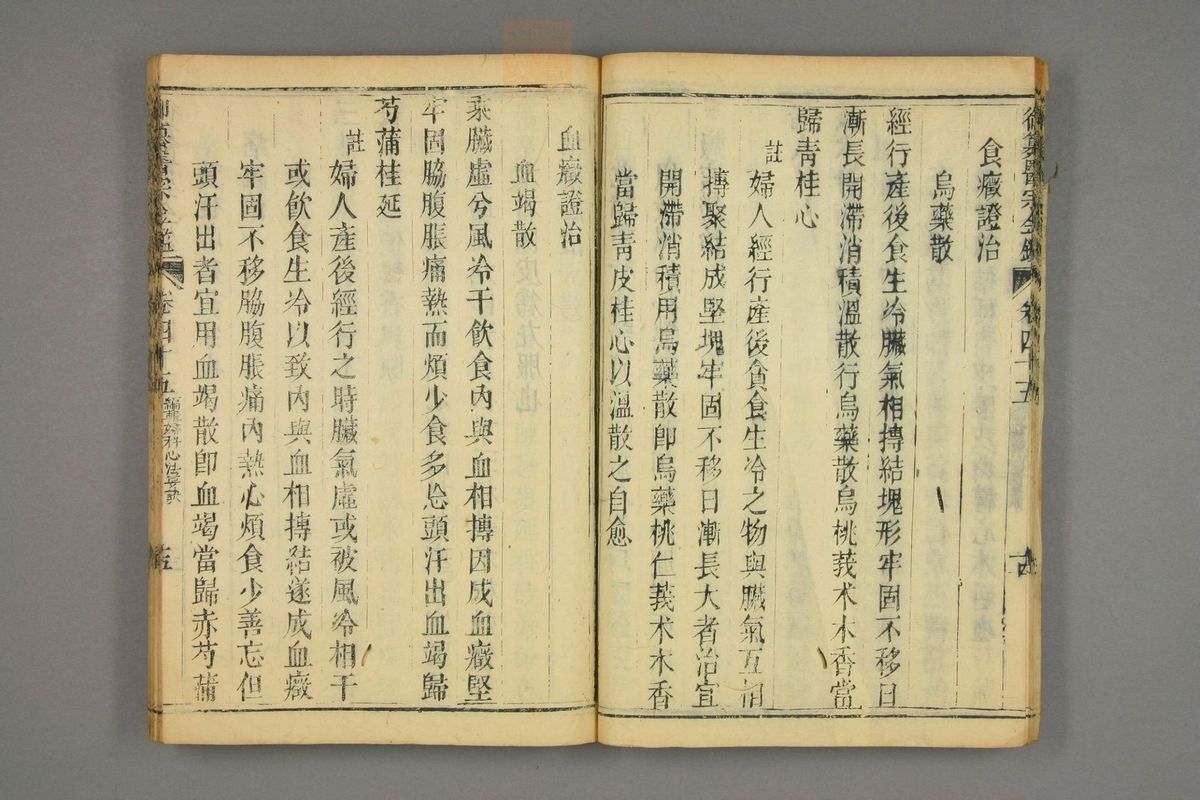 御纂醫宗金鑑 卷四十五
食癥證治
烏藥散
經行產後食生冷臟氣相摶結塊形牢固不移日
漸長開滯消積溫散行烏藥散烏桃莪术木香當
歸青桂心
註
婦人經行產後貪食生冷之物與臟氣互相
摶聚結成堅塊牢固不移日漸長大者治宜
開滯消積用烏藥散卽烏藥桃仁莪术木香
當歸青皮桂心以溫散之自愈
血癥證治
血竭散
乘臟虛兮風冷干飲食內與血相摶因成血癥堅
牢固脇腹脹痛熱而煩少食多忘頭汗出血竭歸
芍蒲桂延
註
婦人產後經行之時臟氣虛或被風冷相干
或飲食生冷以致內與血相摶結遂成血癥
牢固不移脇腹脹痛內熱心煩食少善忘但
頭汗出者宜用血竭散卽血竭當歸赤芍蒲
卷四十五 編輯婦科心法要訣